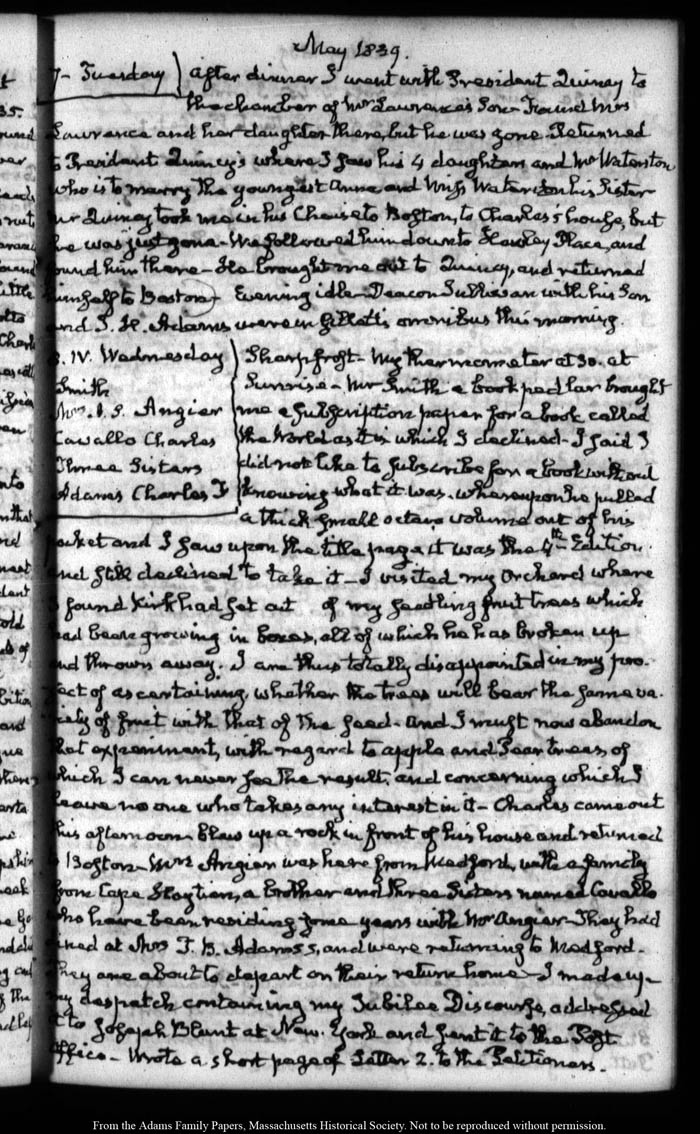 May 1839.
7 - Tuesday) after dinner I went with President Quincy to
the chamber of Mr Lawrence's Son - Found Mrs
Lawrence and her daughter there, but he was gone. Returned
to President Quincy's where I saw his 4 daughters and Mr Waterston
who is to marry the youngest Anna and Miss Waterston his Sister
Mr Quincy took me in his Chaise to Boston, to Charles's house, but
he was just gone - We followed him down to Hawley Place, and
found him there - He brought me out to Quincy, and returned
himself to Boston - Evening idle - Deacon Sullivan with his Son
and I. H. Adams were in Gillett's omnibus this morning.
8. IV. Wednesday
Smith
Mrs. J. S. Angier
Cavallo Charles
Three Sisters
Adams Charles F
Sharp frost - My thermometer at 30. at
Sunrise - Mr Smith a book pedlar brought
me a Subscription paper for a book called
the World as it is which I declined - I said I
did not like to subscribe for a book without
knowing what it was. whereupon he pulled
a thick small octavo volume out of his
pocket and I saw upon the title page it was the 4th Edition.
and still declined to take it - I visited my Orchard where
I found Kirk had set out of my seedling fruit trees which
had been growing in boxes, all of which he has broken up
and thrown away. I am thus totally disappointed in my pro-
ject of ascertaining, whether the trees will bear the same va-
riety of fruit with that of the seed - and I must now abandon
that experiment, with regard to apple and Pear trees, of
which I can never see the result, and concerning which I
leave no one who takes any interest in it - Charles came out
this afternoon. Blew up a rock in front of his house and returned
to Boston - Mrs Angier was here from Medford, with a family
from Cape Haytien, a brother and three Sisters named Cavallo
who have been residing some years with Mr Angier - They had
dined at Mrs T. B. Adams's, and were returning to Medford.
They are about to depart on their return home - I made up
my despatch containing my Jubilee Discourse, addressed
it to Joseph Blunt at New-York and sent it to the Post
Office - Wrote a short page of Letter 2. to the Petitioners.
From the Adams Family Papers, Massachusetts Historical Society. Not to be reproduced without permission.